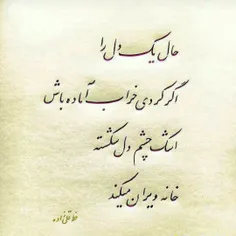 حال یک دل را
اگر کردی خراب آماده باش
اشک چشم دل شکسته
خانه ویران میکند